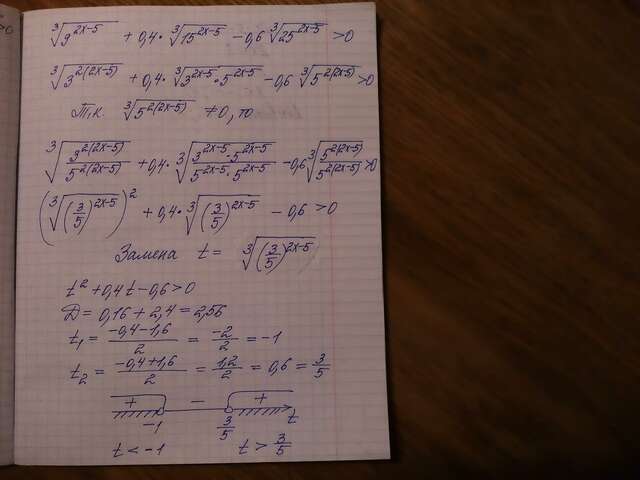 ∛(9^(2x-5)) + 0,4·∛(15^(2x-5)) - 0,6 ∛(25^(2x-5)) >0
∛(3^(2(2x-5))) + 0,4·∛(3^(2x-5)·5^(2x-5)) - 0,6 ∛(5^(2(2x-5))) >0
Т.к. ∛(5^(2(2x-5))) ≠0, то
∛(3^(2(2x-5))/5^(2(2x-5))) + 0,4·∛((3^(2x-5)·5^(2x-5))/(5^(2x-5)·5^(2x-5))) - 0,6 ∛(5^(2(2x-5))/5^(2(2x-5))) >0
(∛((3/5)^(2x-5)))² + 0,4·∛((3/5)^(2x-5)) - 0,6 >0
Замена t = ∛((3/5)^(2x-5))
t² + 0,4t - 0,6 >0
D = 0,16 + 2,4 = 2,56
t₁ = (-0,4-1,6)/2 = -2/2 = -1
t₂ = (-0,4+1,6)/2 = 1,2/2 = 0,6 = 3/5
+ - +
-1 3/5 t
t < -1 t > 3/5